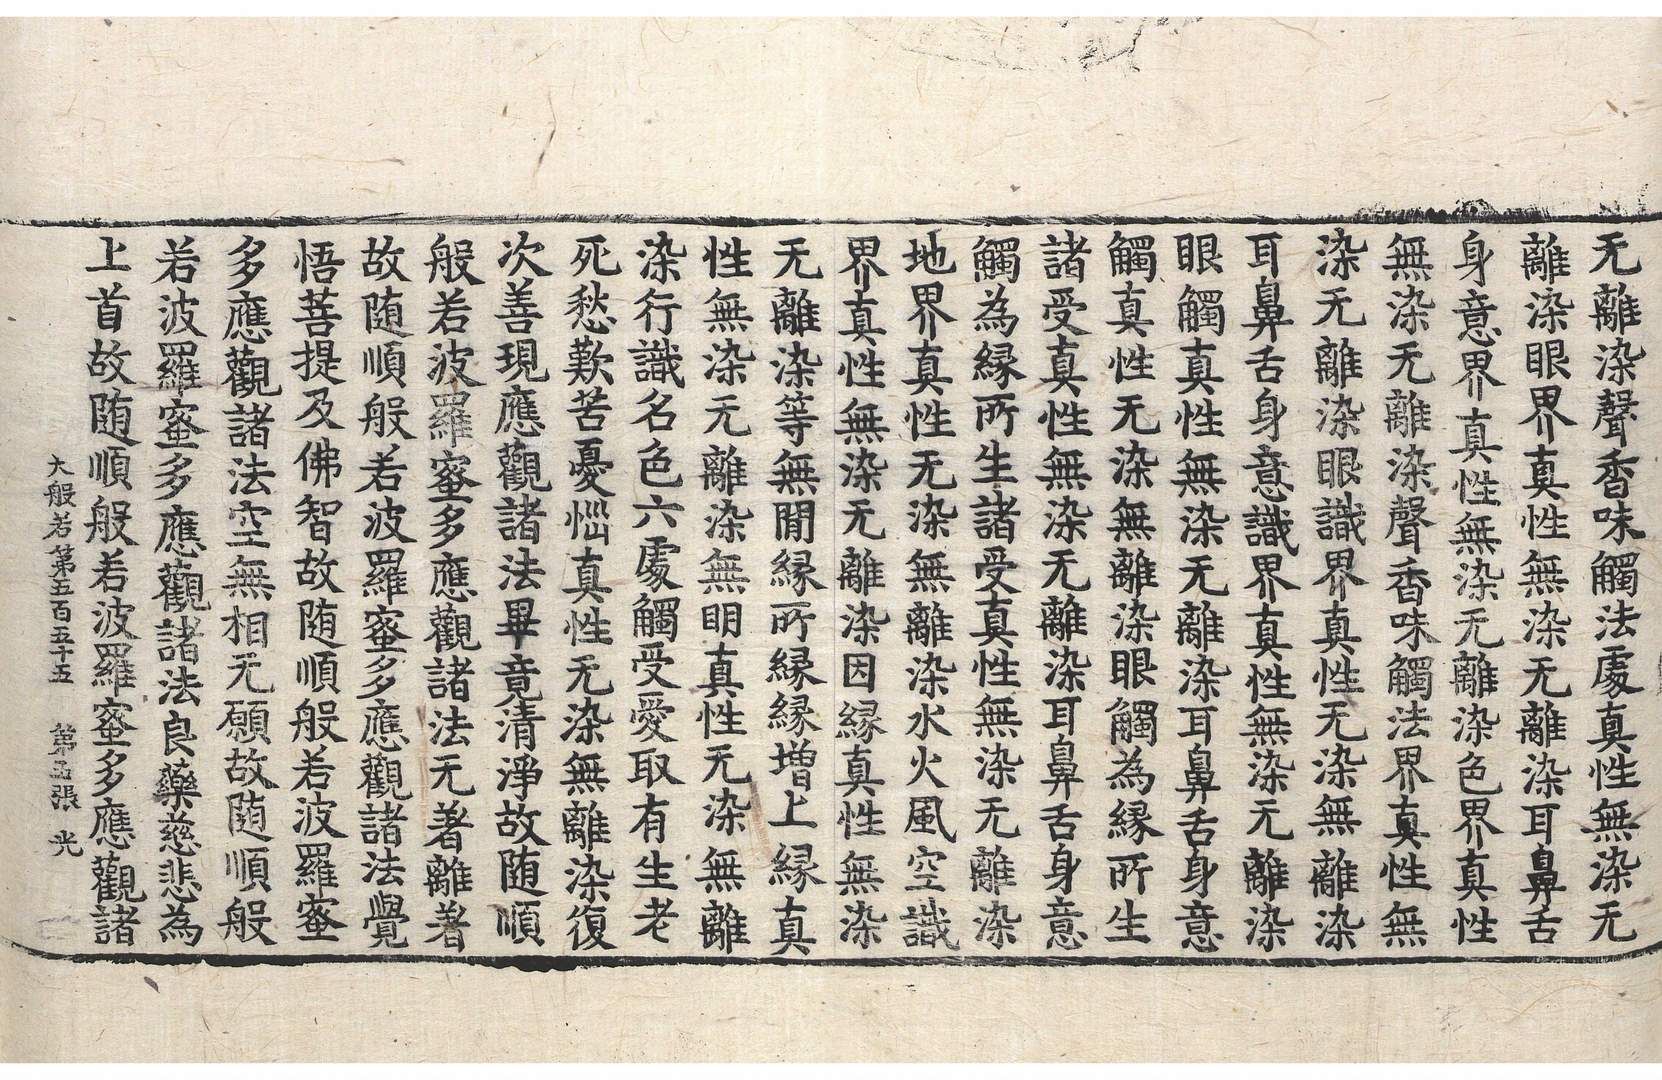 无離染聲香味觸法處真性無染无
離染眼界真性無染无離染耳鼻舌
身意界真性無染无離染色界真性
無染无離染聲香味觸法界真性無
染无離染眼識界真性无染無離染
耳鼻舌身意識界真性無染无離染
眼觸真性無染无離染耳鼻舌身意
觸真性无染無離染眼觸為緣所生
諸受真性無染无離染耳鼻舌身意
觸為緣所生諸受真性無染无離染
地界真性无染無離染水火風空識
界真性無染无離染因緣真性無染
无離染等無間緣所緣緣增上緣真
性無染无離染無明真性无染無離
染行識名色六處觸受愛取有生老
死愁歎苦憂惱真性无染無離染復
次善現應觀諸法畢竟清淨故随順
般若波羅蜜多應觀諸法无著離著
故随順般若波羅蜜多應觀諸法覺
悟菩提及佛智故随順般若波羅蜜
多應觀諸法空無相无願故随順般
若波羅蜜多應觀諸法良藥慈悲為
上首故随順般若波羅蜜多應觀諸
大般若第五百五十五 第五張 光